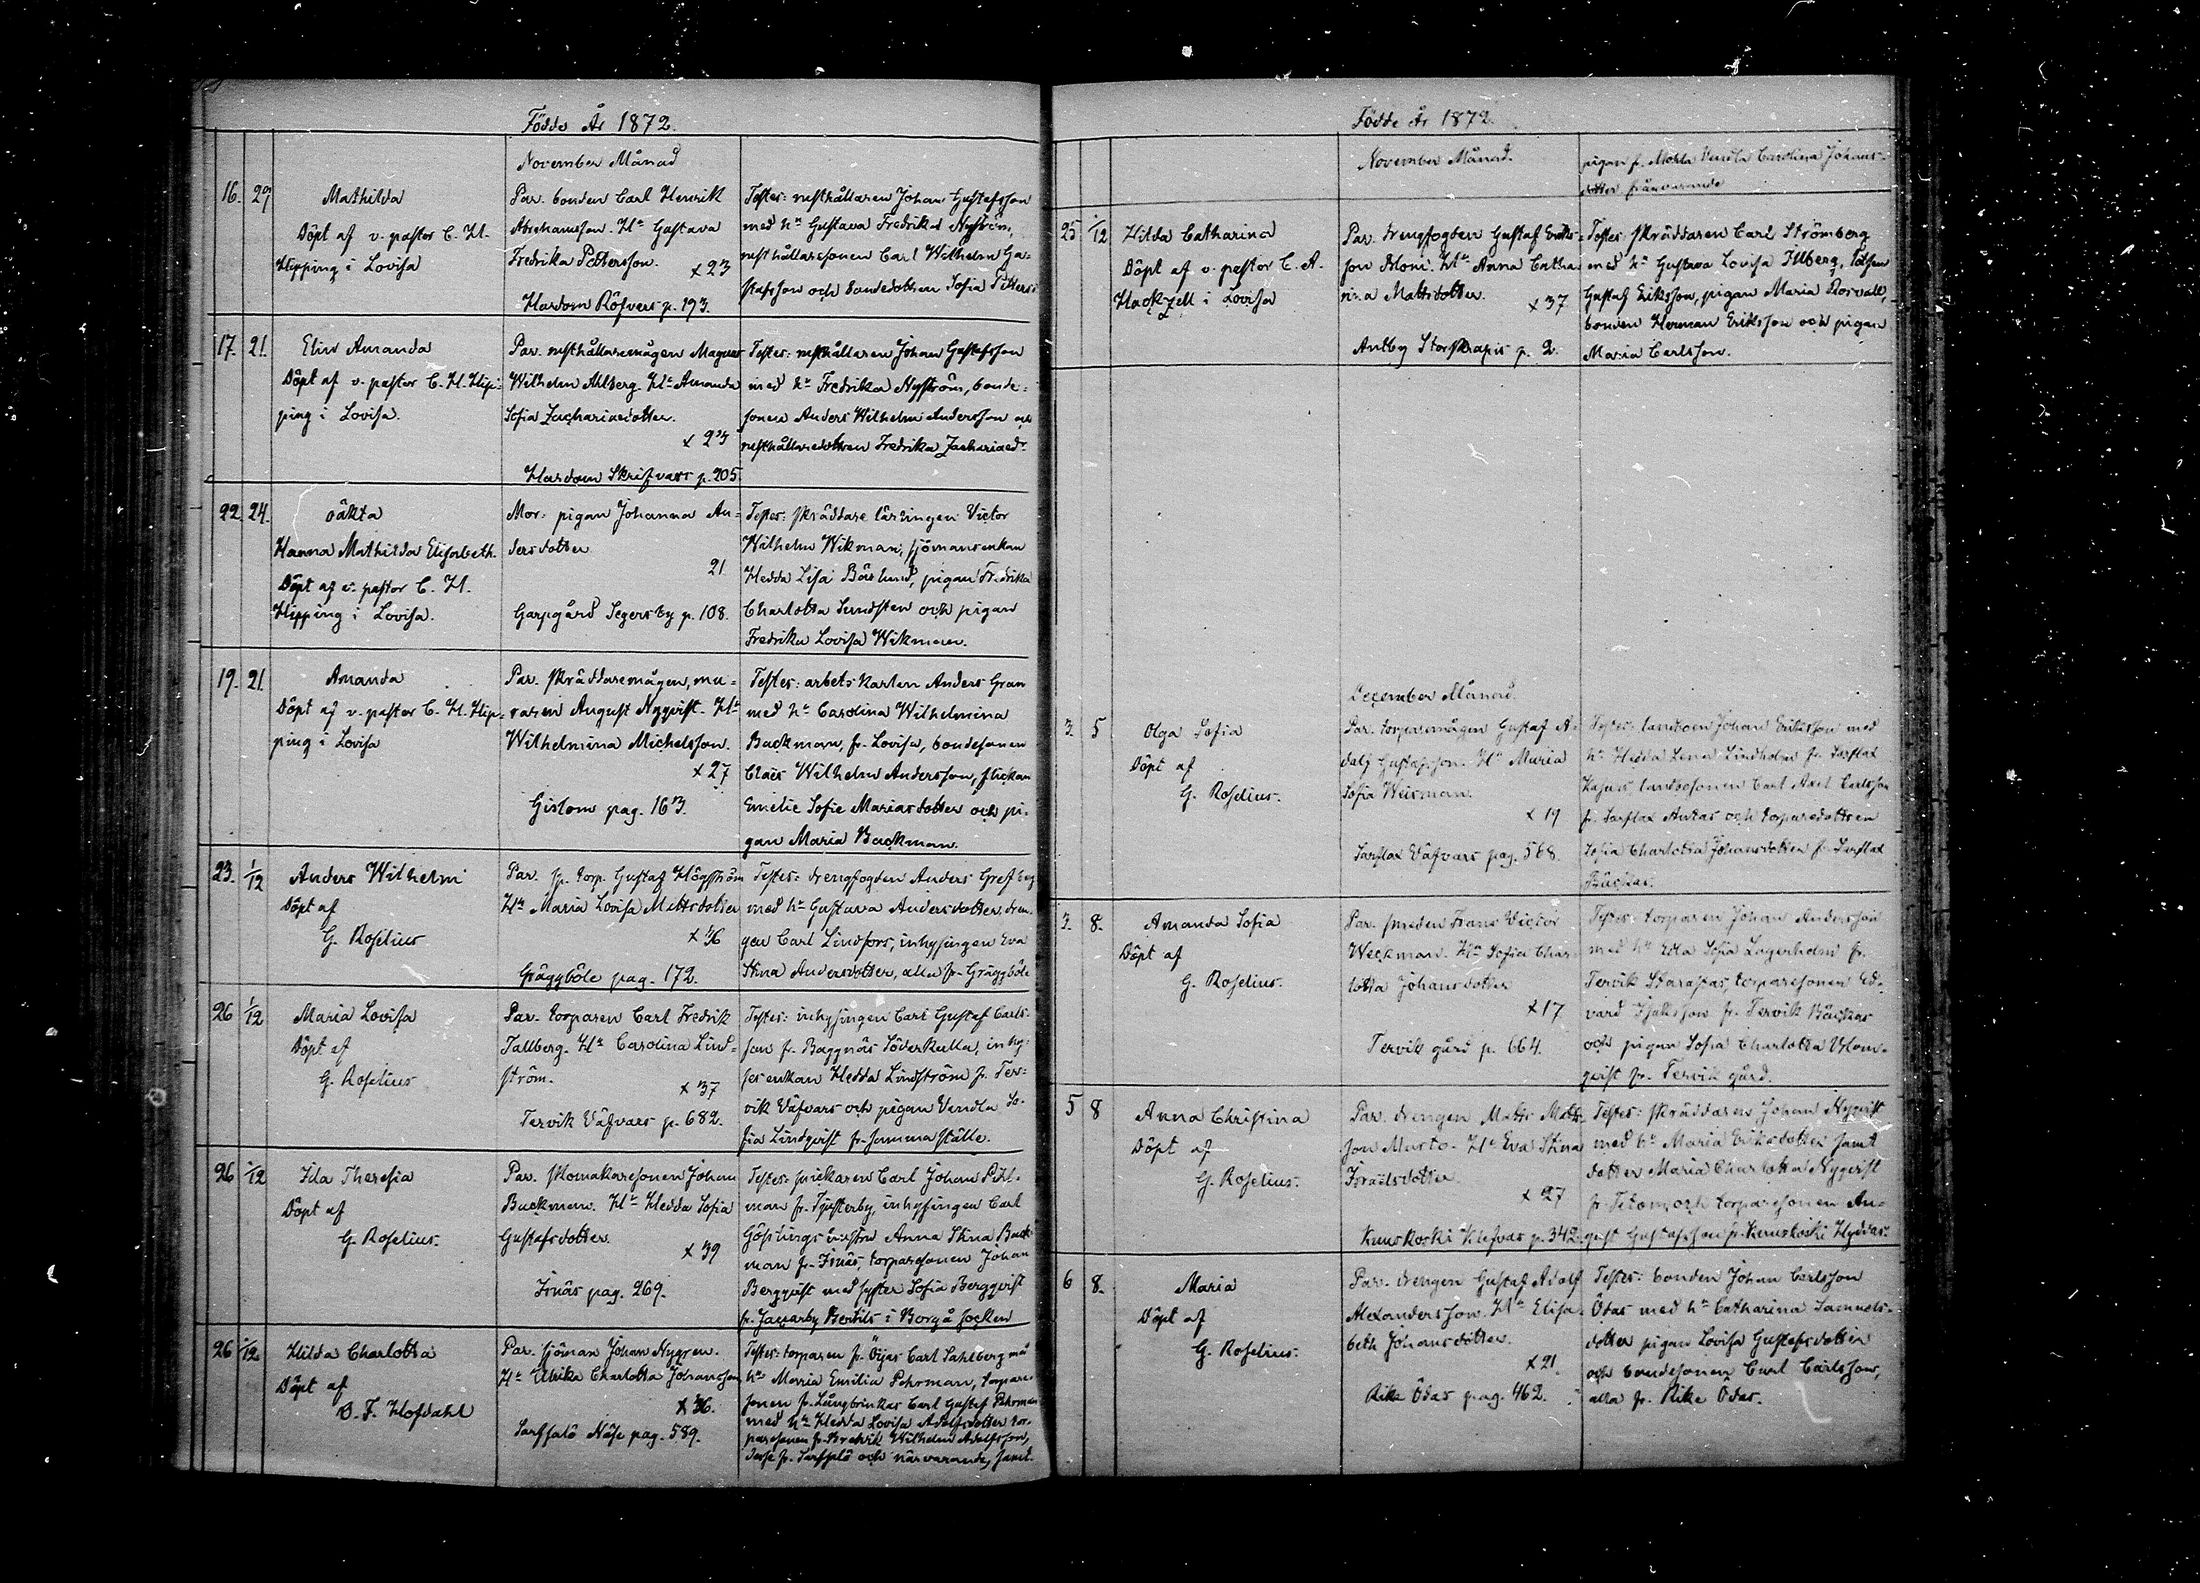 Födde År 1872.
November Månad
16. 29 Mathilda
Döpt af v. pastor C. H.
Hipping i Lovisa
Par. bonden Carl Henrik
Abrahamsson. Hu Gustava
Fredrika Pettersson.
x 23
Hardom Röfvers p. 193.
Testes: rusthållaren Johan Gustafsson
med hu Gustava Fredrika Nyström,
rusthållaresonen Carl Wilhelm Gu=
stafsson och bondedottren Sofia Petters:
17. 21. Elin Amanda
Döpt af v. pastor C. H. Hip=
ping i Lovisa.
Par. rusthållaremågen Magnus
Wilhelm Ahlberg. Hu Amanda
Sofia Zachariaedotter.
x 23
Hardom Skrifvars p. 205.
Testes: rusthållaren Johan Gustafsson
med hu Fredrika Nyström, bonde=
sonen Anders Wilhelm Andersson och
rusthållaredottren Fredrika Zachariaedr
22. 24. oäkta
Hanna Mathilda Elisabeth.
Döpt af v. pastor C. H.
Hipping i Lovisa.
Mor. pigan Johanna An=
dersdotter
21
Garpgård Segersby p. 108.
Testes: skräddare lärlingen Victor
Wilhelm Wikman, sjömansenkan
Hedda Lisa Båslund, pigan Fredrika
Charlotta Sundsten och pigan
Fredrika Lovisa Wikman.
19. 21. Amanda
Döpt af v. pastor C. H. Hip=
ping i Lovisa
Par. skräddaremågen, mu=
raren August Nyqvist. Hu
Wilhelmina Michelsson.
x 27
Gislom pag. 163.
Testes: arbetskarlen Anders Gran
med hu Carolina Wilhelmina
Backman, fr. Lovisa, bondesonen
Claes Wilhelm Andersson, flickan
Emelie Sofie Mariasdotter och pi=
gan Maria Backman.
23. 1/12 Anders Wilhelm
Döpt af
G. Roselius
Par. sp. torp. Gustaf Högström
Hu Maria Lovisa Mattsdotter
x 36
Gräggböle pag. 172.
Testes: drengfogden Anders Grefberg
med hu Gustava Andersdotter, dren=
gen Carl Lindfors, inhysingen Eva
Stina Andersdotter, alla fr. Gräggböle
26 1/12 Maria Lovisa
Döpt af
G. Roselius
Par. torparen Carl Fredrik
Tallberg. Hu Carolina Lind=
ström.
x 37
Tervik Väfvars p. 682.
Testes: inhysingen Carl Gustaf Carls=
son fr. Baggnäs Söderkulla, inhy=
ses enkan Hedda Lindström fr. Ter=
vik Väfvars och pigan Vendla So=
fia Lindqvist fr. samma ställe.
26 1/12 Ida Theresia
Döpt af
G. Roselius.
Par. skomakaresonen Johan
Backman. Hu Hedda Sofia
Gustafsdotter
x 39
Isnäs pag. 269.
Testes: prickaren Carl Johan Pihl=
man fr. Tjusterby, inhysingen Carl
Göstlings Anna Stina Back=
man fr. Isnäs, torparesonen Johan
Bergqvist med syster Sofia Bergqvist
fr. Jackarby Bertils i Borgå socken
26 1/12 Hilda Charlotta
Döpt af
O. F. Hofdahl
Par. sjöman Johan Nygren.
Hu Ulrika Charlotta Johansson
x 36.
Sarfsalö Näse pag. 589.
Testes: torparen fr. Öijas Carl Sahlberg med
hu Maria Emilia Pehrman, torpare=
sonen fr. Långbrinkas Carl Gustaf Pehrman
med hu Hedda Lovisa Adolfsdotter tor=
paresonen fr. Bredvik Wilhelm Adolfsson,
desse fr. Sarfsalö och närvarande, samt
Födde År 1872.
November Månad.
pigan fr. Vendla Carolina Johans=
dotter frånvarande
25 1/12 Hilda Catharina
Döpt af v. pastor C. A.
Hackzell i Lovisa
Par. drengfogden Gustaf Eriks=
son Moni. Hu Anna Catha=
rina Mattsdotter.
x 37
Antby Storskrapis p. 2.
Testes: skräddaren Carl Strömberg
med hu Gustava Lovisa Illberg, lotsen
Gustaf Eriksson, pigan Maria Rosvall,
bonden Herman Eriksson och pigan
Maria Carlsson.
December Månad.
3. 5 Olga Sofia
Döpt af
G. Roselius.
Par. torparemågen Gustaf A=
dolf Gustafsson. Hu Maria
Sofia Weisman.
x 19
Sarflax Väfvars pag. 568.
Testes: landboen Johan Eriksson med
hu Hedda Lena Lindholm fr. Sarflax
landbosonen Carl Axel Carlsson
fr. Sarflax Antas och torparedottren
Sofia Charlotta Johansdotter fr. Sarflax
Backas.
3. 8. Amanda Sofia
Döpt af
G. Roselius.
Par. smeden Frans Victor
Weckman. Hu Sofia Char=
lotta Johansdotter
x 17
Tervik gård p. 664.
Testes: torparen Johan Andersson
med hu Edla Sofia Lagerholm fr.
Tervik Starastas, torparesonen Ed=
vard Isaksson fr. Tervik Backas
och pigan Sofia Charlotta Blom=
qvist fr. Tervik gård.
5 8 Anna Christina
Döpt af
G. Roselius.
Par. drengen Matts Matts=
son Murto. Hu Eva Stina
Israelsdotter
x 27
Kuuskoski Klefvas p. 342.
Testes: skräddaren Johan Nyqvist
med hu Maria Eriksdotter samt
dotter Maria Charlotta Nyqvist
fr. Tetom och torparesonen Au=
gust Gustafsson fr. Kuuskoski
6 8. Maria
Döpt af
G. Roselius.
Par. drengen Gustaf Adolf
Alexandersson. Hu Elisa=
beth Johansdotter.
x 21.
Rike Ödas pag. 462.
Testes: bonden Johan Carlsson
Ödas med hu Catharina Samuels=
dotter pigan Lovisa Gustafsdotter
och bondesonen Carl Carlsson,
alla fr. Rike Ödas.